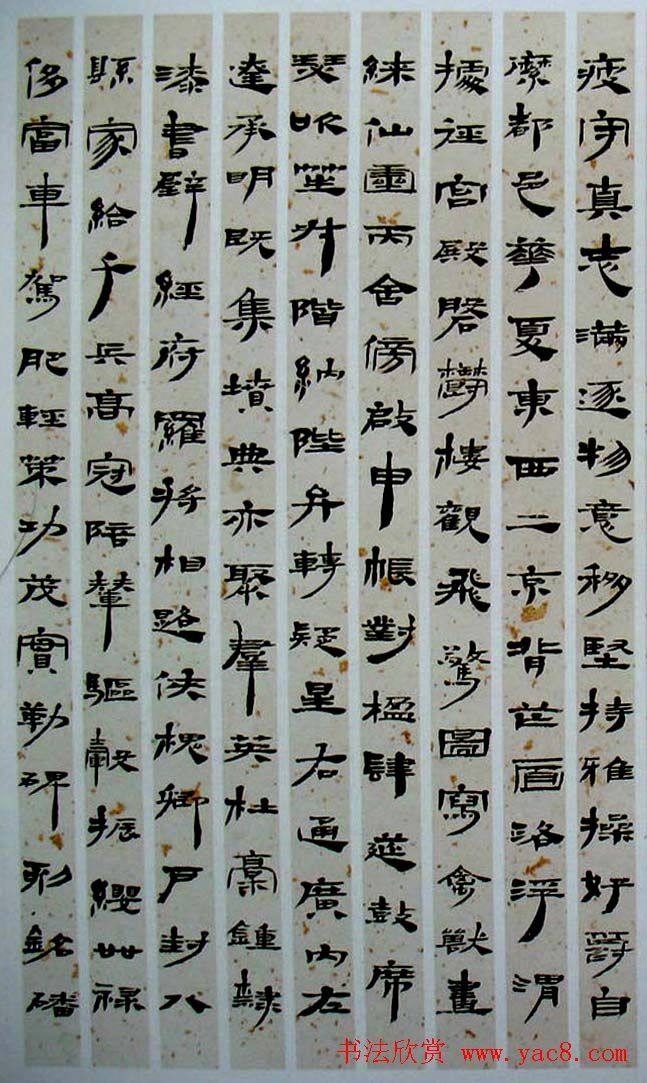 疲守真志滿逐物意移堅持雅操好爵自
縻都邑華夏東西二京背芒面洛浮渭
據涇宮殿磐鬱樓觀飛驚圖寫禽獸畫
綵仙靈丙舍傍啟甲帳對楹肆筵鼓席
瑟吹笙升階納陛弁轉疑星右通廣內左
達承明既集墳典亦聚羣英杜稾鍾隸
漆書壁經府羅將相路俠槐卿戶封八
縣家給千兵高冠陪輦驅轂振纓世祿
侈富車駕肥輕策功茂實勒碑刻銘磻
书法欣赏 www.yac8.com